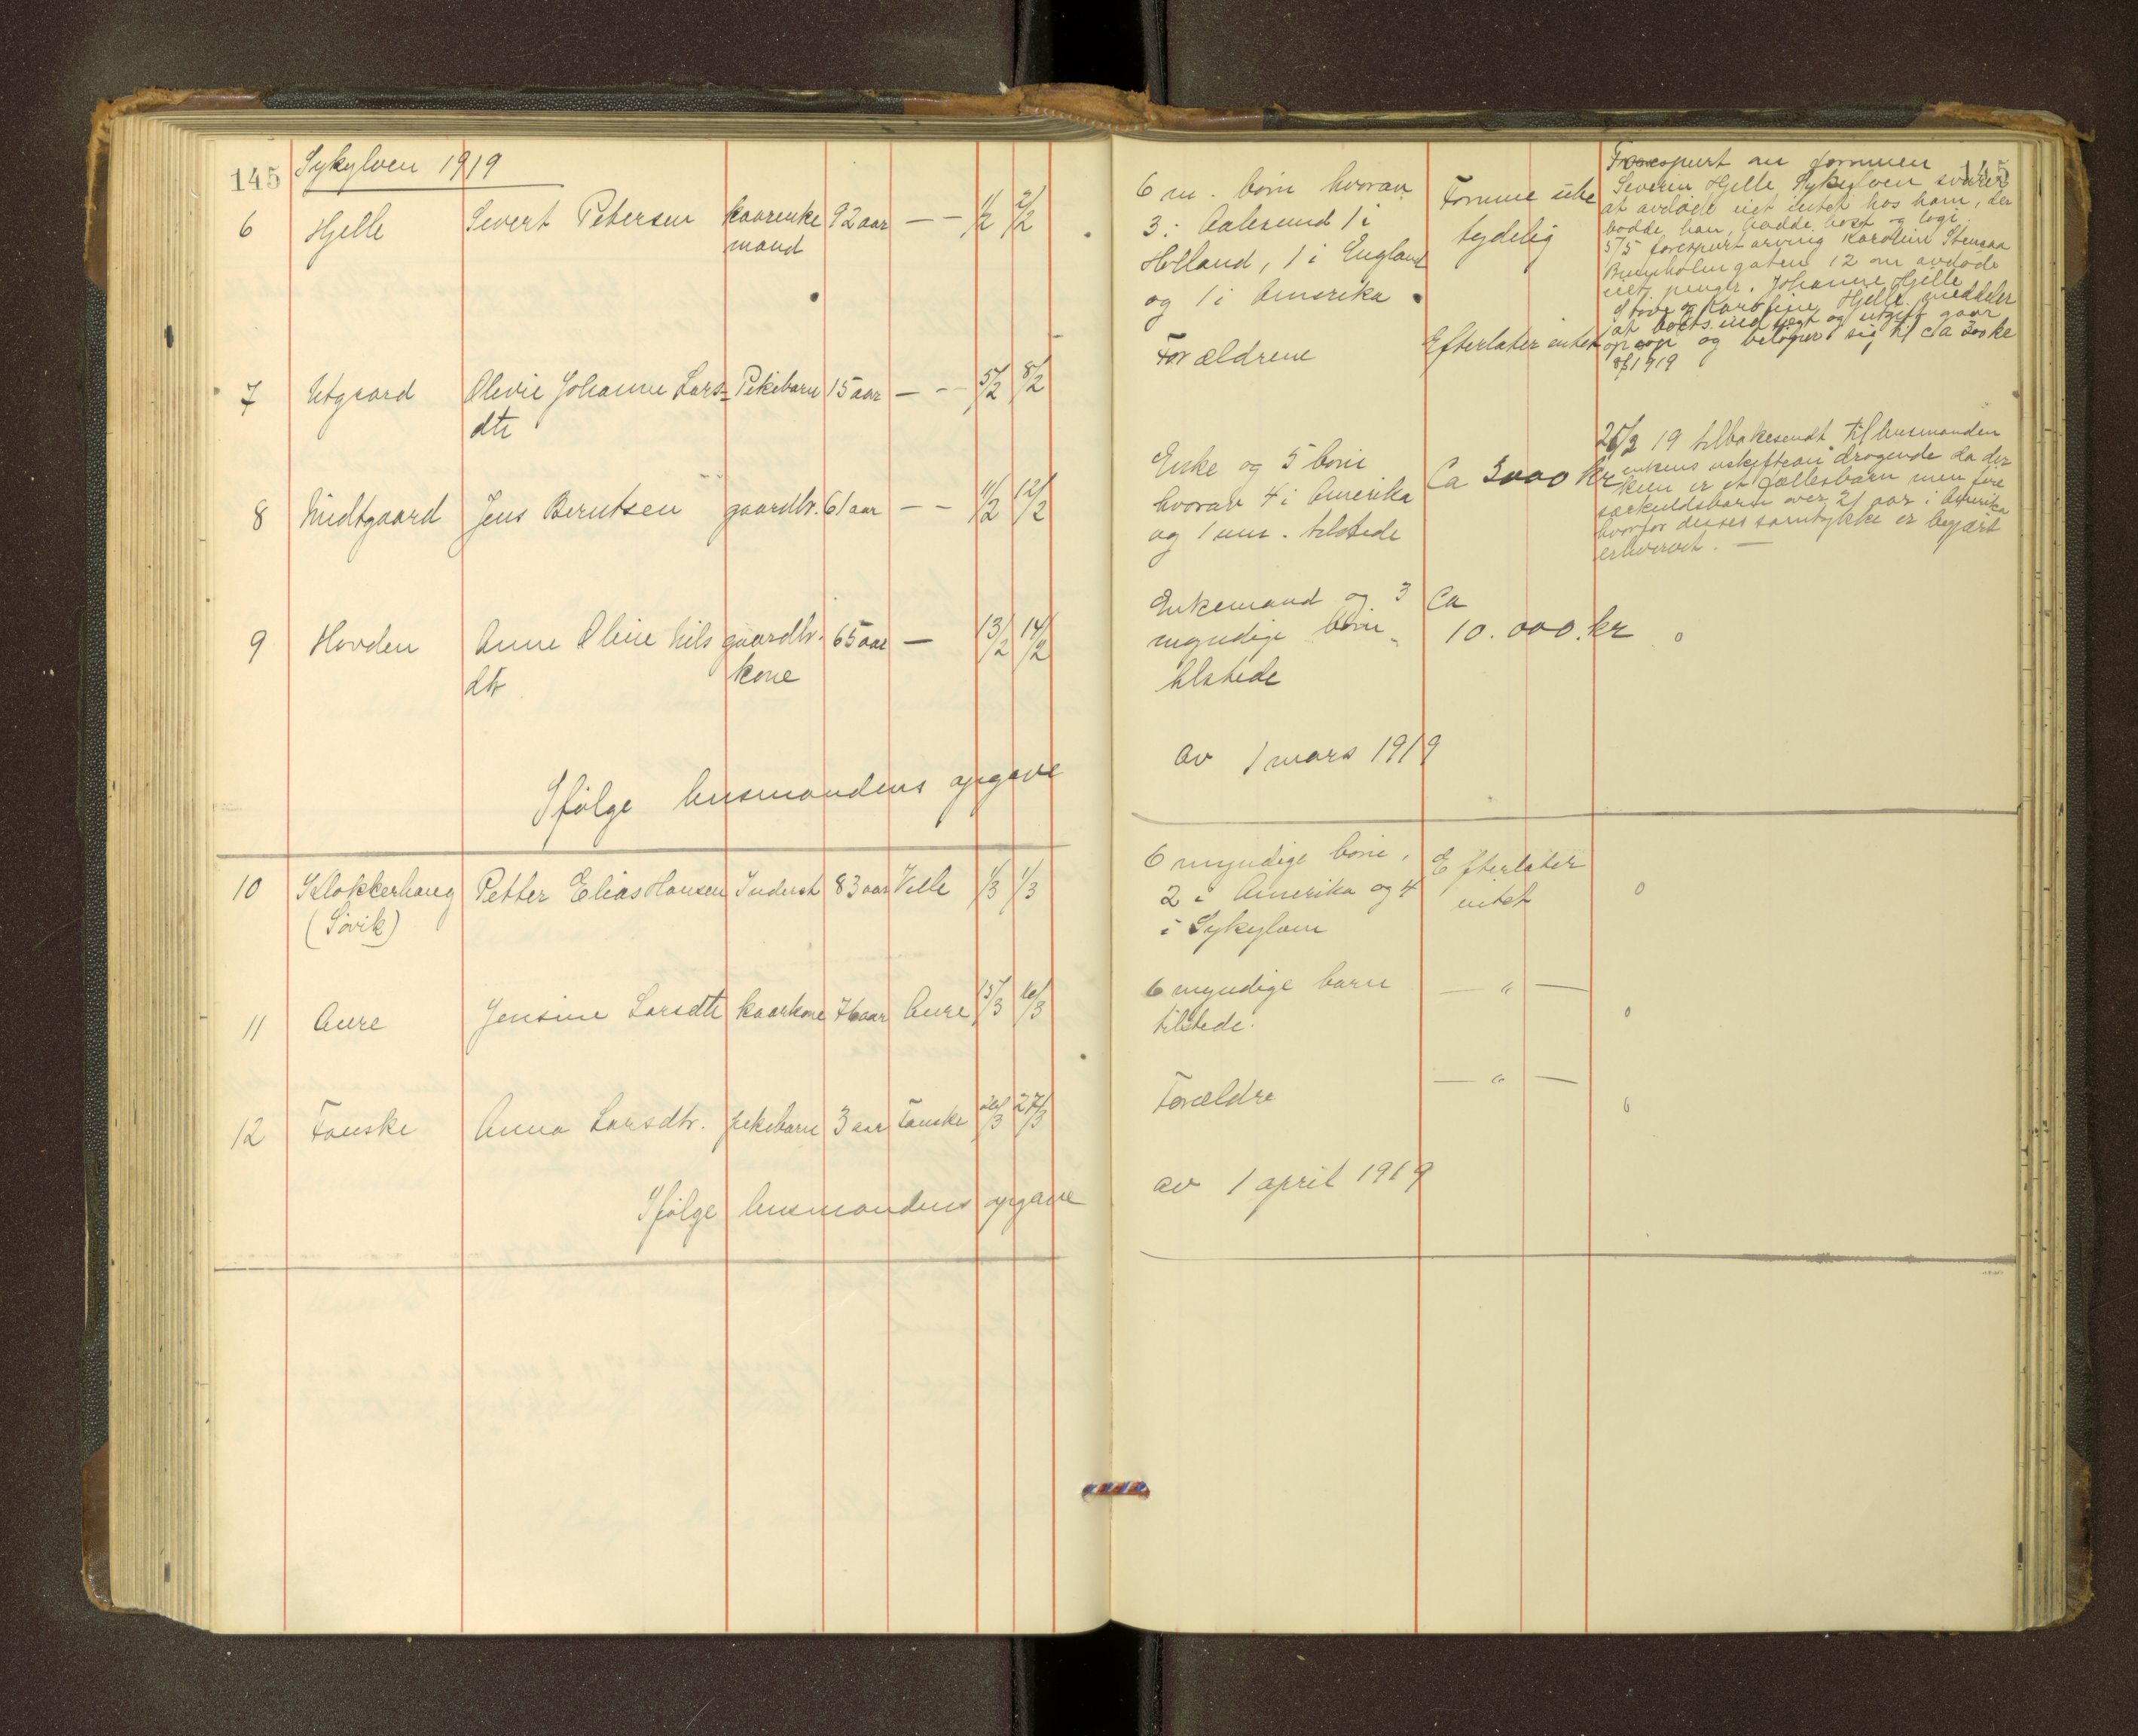 145
Sykylven 1919
6 Hjelle Sivert Petersen kaarenke 92 aar — — 1/2 2/2
mand
7 Utgaard Olivie Johanne Lars= Pikebarn 15 aar — — 5/2 8/2
dtr
8 Midtgaard Jens Berntsen gaardbr. 61 aar — — 11/2 12/2
9 Hovden Anne Oline Nils gaardbr. 65 aar — 13/2 14/2
dtr kone
Ifølge lensmandens opgave
10 Klokkerhaug Petter Elias Hansen Inderst 83 aar Velle 1/3 1/3
(Søvik)
11 Aure Jensine Larsdtr kaarkone 76 aar Aure 15/3 16/3
12 Fauske Anna Larsdtr. pikebarn 3 aar Fauske 26/3 27/3
Ifølge lensmandens opgave
145
6 m. børn hvorav
3 i Aalesund 1 i
Holland, 1 i England
og 1 i Amerika
Formue ikke
tydelig
Forespurt om formuen
Severin Hjelle Sykylven svarer
at avdøde eiet intet hos ham, der
bodde han, hadde kost og logi.
5/5 forespurt arving Karoline
12 om avdøde
eiet penger. Johanne Hjelle
og Karoline Hjelle meddeler
at boets indtægt og utgift gaar
op og beløper sig til ca 300 kr
1919
Forældrene
Efterlater intet
Enke og 5 børn
hvorav 4 i Amerika
og 1 um. tilstede
Ca 3000 kr
25/3 19 tilbakesendt til lensmanden
enkens uskifteandragende da der
kun er et fællesbarn men fire
særkuldsbarn over 21 aar i Amerika
hvorfor disses samtykke er begjært
erhvervet. —
Enkemand og 3
myndige børn
tilstede
Ca
10.000 kr 0
av 1 mars 1919
6 myndige børn,
2 i Amerika og 4
i Sykylven
Efterlater
intet
0
6 myndige barn
tilstede.
— " —
0
Forældre
— " —
0
av 1 april 1919